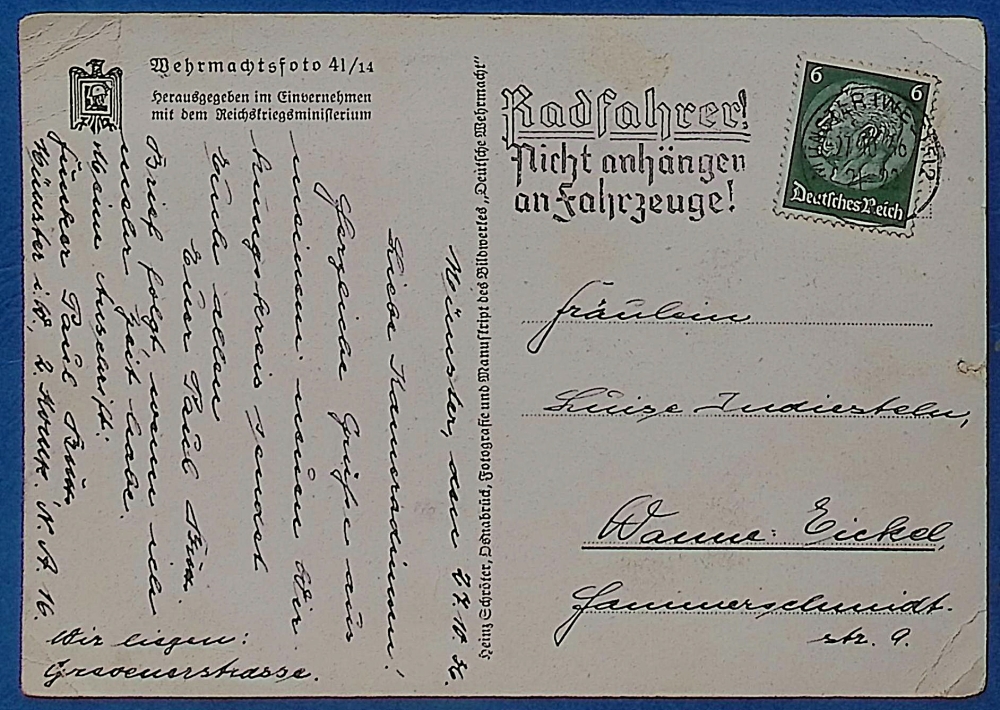 Wehrmachtsfoto 41/14
Herausgegeben im Einvernehmen
mit dem Reichskriegsministerium
Radfahrer!
Nicht anhängen
an Fahrzeuge!
6 6
Deutsches Reich
Heinz Schröter, Osnabrück, Fotografie und Manuskript des Bildwerkes „Deutsche Wehrmacht"
Münster, den 27.10.36.
Liebe Kameradinnen!
Herzliche Grüße aus
meinem neuen Wir
kungskreis sendet
Euch allen
Euer Paul
Brief folgt wenn ich
mehr Zeit habe.
Meine Anschrift:
Funker Paul
Münster i. W., 2. N. A. 16.
Wir liegen:
Grevenerstrasse.
Fräulein
Luise
Wanne-Eickel,
Hammerschmidt-
str. 9.